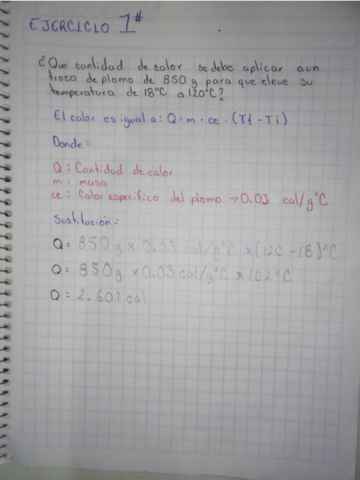 EJERCICIO 1#
¿Que cantidad de calor se debe aplicar a un
troco de plomo de 850 g para que eleve su
temperatura de 18°C a 120°C?
El calor es igual a: Q = m · ce · (Tf - Ti)
Donde:
Q: Cantidad de calor
m: masa
ce: Calor especifico del plomo → 0.03 cal/g°C
Sustitución:
Q = 850g × 0.03 cal/g°C × (120 - 18)°C
Q = 850g × 0.03 cal/g°C × 102°C
Q = 2.601 cal